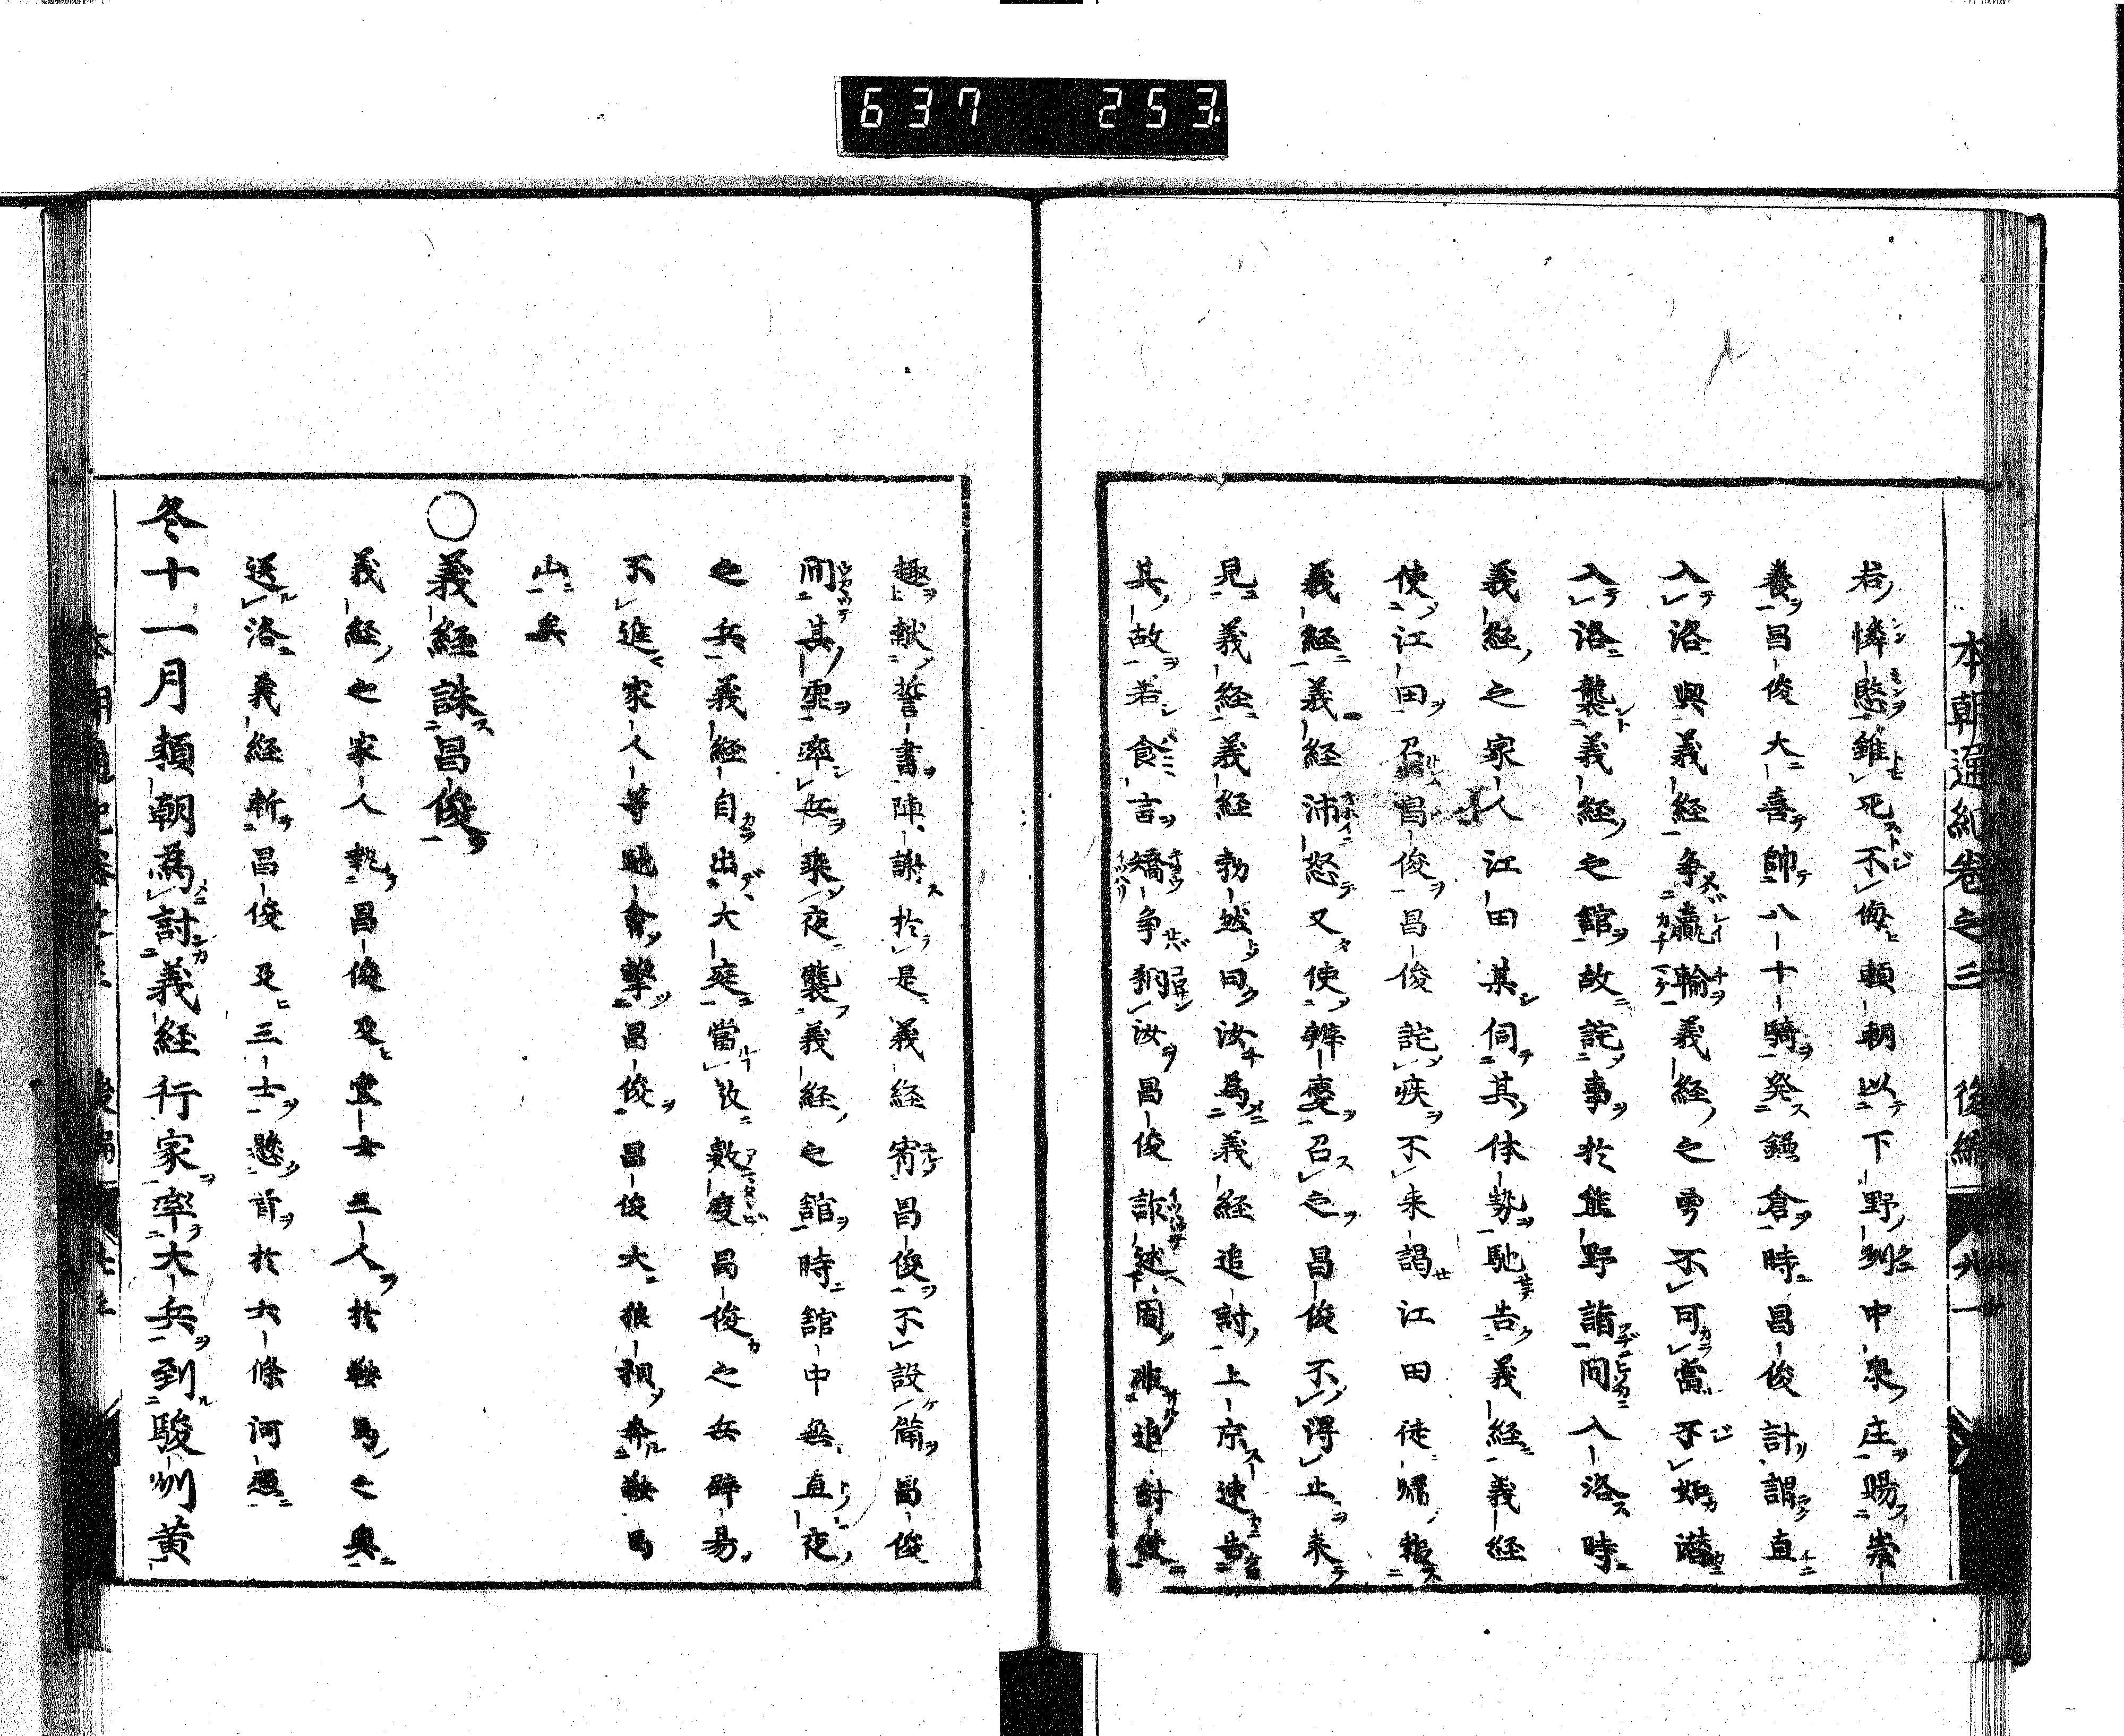 637 253
本朝通紀卷之三 後編 九一
君憐愍雖死不侮頼朝以下野刕中泉庄賜嵩
養昌俊大喜帥八十騎発鎌倉時昌俊計謂直
入洛與義経争贏輸義経之勇不可當不如潜
入洛襲義経之舘故詫事於熊野詣間入洛時
義経之家人江田某伺其体勢馳告義経義経
使江田召昌俊昌俊詫疾不来謁江田徒帰報
義経義経沛怒又使辨慶召之昌俊不得止来
見義経義経勃然曰汝為義経追討上京速告
其故若食言矯争拘汝昌俊詐述固非追討
趣献誓書陣謝於是義経宥昌俊不設備昌俊
間其率兵乘夜襲義経之舘時舘中無直夜
之兵義経自出大庭當敌數度昌俊之兵辟易
不進家人等馳會撃昌俊昌俊大狼狽奔鞍馬
山矣
○義経誅昌俊
義経之家人執昌俊及黨士三人於鞍馬之奥
送洛義経斬昌俊及三士懸首於六條河邊
冬十一月頼朝為討義経行家率大兵到駿刕黄